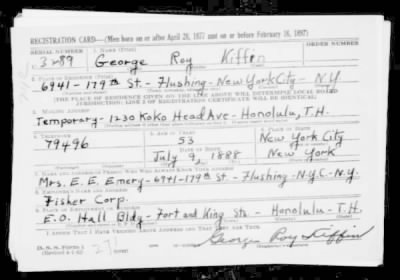 REGISTRATION CARD—(Men born on or after April 28, 1877 and on or before February 16, 1897)
SERIAL NUMBER 1. NAME (Print) ORDER NUMBER
3289 George Roy Kiffin
2. PLACE OF RESIDENCE (Print)
6941-179th St.- Flushing-New York City- N.Y.
[THE PLACE OF RESIDENCE GIVEN ON THE LINE ABOVE WILL DETERMINE LOCAL BOARD
JURISDICTION; LINE 2 OF REGISTRATION CERTIFICATE WILL BE IDENTICAL]
3. MAILING ADDRESS
Temporary-1230 Koko Head Ave-Honolulu, T.H.
4. TELEPHONE 5. AGE IN YEARS 6. PLACE OF BIRTH
79496 53 New York City
DATE OF BIRTH
July 9, 1888 New York
7. NAME AND ADDRESS OF PERSON WHO WILL ALWAYS KNOW YOUR ADDRESS
Mrs. E. E. Emery-6941-179th St-Flushing-N.Y.C-N.Y.
8. EMPLOYER'S NAME AND ADDRESS
Fisher Corp.
9. PLACE OF EMPLOYMENT OR BUSINESS
E.O. Hall Bldg-Fort and King Sts-Honolulu-T.H.
I AFFIRM THAT I HAVE VERIFIED ABOVE ANSWERS AND THAT THEY ARE TRUE.
D.S.S. Form 1
(over)
George Roy Kiffin